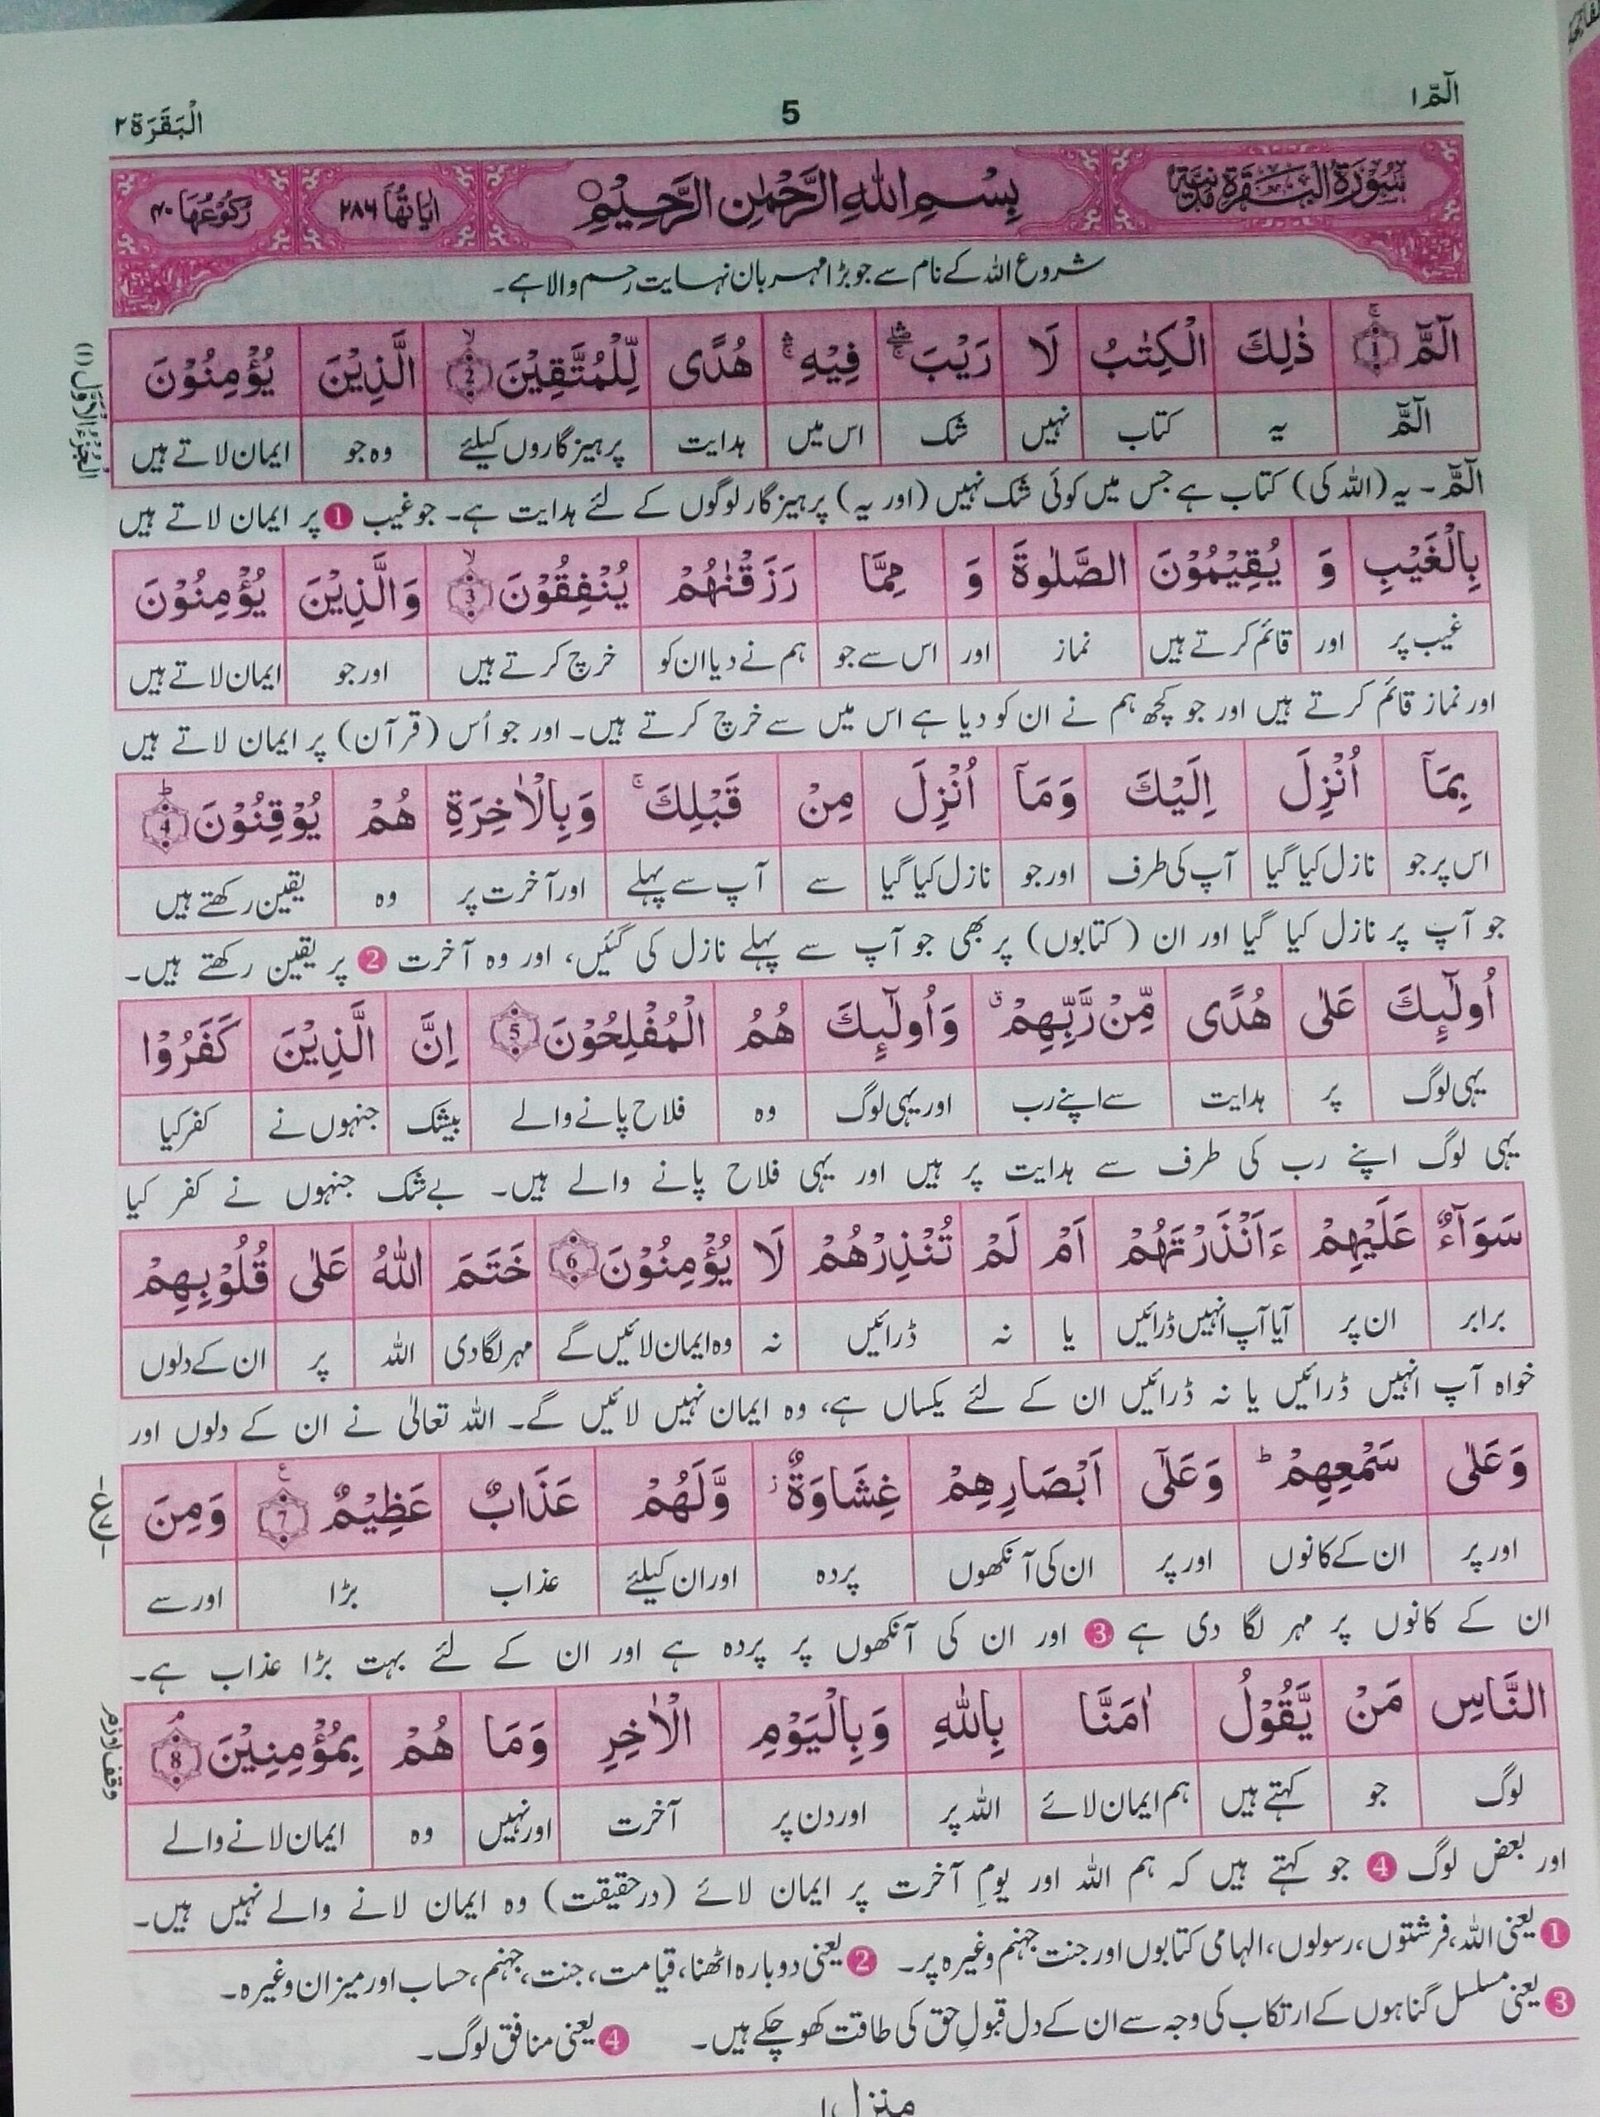 الٓمّٓ ١
5
الْبَقَرَة ٢
سُوْرَةُ الْبَقَرَةِ مَدَنِيَّةٌ
بِسْمِ اللّٰهِ الرَّحْمٰنِ الرَّحِيْمِ
اٰيَاتُهَا ٢٨٦
رُكُوْعُهَا ٤٠
شروع اللہ کے نام سے جو بڑا مہربان نہایت رحم والا ہے۔
الٓمّٓ ۚ 1 ذٰلِكَ الْكِتٰبُ لَا رَيْبَ ۛۖ فِيْهِ ۛۚ هُدًى لِّلْمُتَّقِيْنَ ۙ 2 الَّذِيْنَ يُؤْمِنُوْنَ
الٓمّٓ یہ کتاب نہیں شک اس میں ہدایت پرہیزگاروں کیلئے وہ جو ایمان لاتے ہیں
اَلْجُزْءُ الْاَوَّلُ (١)
الٓمّٓ۔ یہ (اللہ کی) کتاب ہے جس میں کوئی شک نہیں (اور یہ) پرہیزگار لوگوں کے لئے ہدایت ہے۔ جو غیب 1 پر ایمان لاتے ہیں
بِالْغَيْبِ وَ يُقِيْمُوْنَ الصَّلٰوةَ وَ مِمَّا رَزَقْنٰهُمْ يُنْفِقُوْنَ ۙ 3 وَالَّذِيْنَ يُؤْمِنُوْنَ
غیب پر اور قائم کرتے ہیں نماز اور اس سے جو ہم نے دیا ان کو خرچ کرتے ہیں اور جو ایمان لاتے ہیں
اور نماز قائم کرتے ہیں اور جو کچھ ہم نے ان کو دیا ہے اس میں سے خرچ کرتے ہیں۔ اور جو اُس (قرآن) پر ایمان لاتے ہیں
بِمَاۤ اُنْزِلَ اِلَيْكَ وَمَاۤ اُنْزِلَ مِنْ قَبْلِكَ ۚ وَبِالْاٰخِرَةِ هُمْ يُوْقِنُوْنَ ؕ 4
اس پر جو نازل کیا گیا آپ کی طرف اور جو نازل کیا گیا سے آپ سے پہلے اور آخرت پر وہ یقین رکھتے ہیں
جو آپ پر نازل کیا گیا اور ان (کتابوں) پر بھی جو آپ سے پہلے نازل کی گئیں، اور وہ آخرت 2 پر یقین رکھتے ہیں۔
اُولٰٓئِكَ عَلٰى هُدًى مِّنْ رَّبِّهِمْ ۗ وَاُولٰٓئِكَ هُمُ الْمُفْلِحُوْنَ 5 اِنَّ الَّذِيْنَ كَفَرُوْا
یہی لوگ پر ہدایت سے اپنے رب اور یہی لوگ وہ فلاح پانے والے بیشک جنہوں نے کفر کیا
یہی لوگ اپنے رب کی طرف سے ہدایت پر ہیں اور یہی فلاح پانے والے ہیں۔ بےشک جنہوں نے کفر کیا
سَوَآءٌ عَلَيْهِمْ ءَاَنْذَرْتَهُمْ اَمْ لَمْ تُنْذِرْهُمْ لَا يُؤْمِنُوْنَ 6 خَتَمَ اللّٰهُ عَلٰى قُلُوْبِهِمْ
برابر ان پر آیا آپ انہیں ڈرائیں یا نہ ڈرائیں نہ وہ ایمان لائیں گے مہر لگا دی اللہ پر ان کے دلوں
خواہ آپ انہیں ڈرائیں یا نہ ڈرائیں ان کے لئے یکساں ہے، وہ ایمان نہیں لائیں گے۔ اللہ تعالیٰ نے ان کے دلوں اور
وَعَلٰى سَمْعِهِمْ ؕ وَعَلٰٓى اَبْصَارِهِمْ غِشَاوَةٌ ۫ وَّلَهُمْ عَذَابٌ عَظِيْمٌ 7 وَمِنَ
ع
اور پر ان کے کانوں اور پر ان کی آنکھوں پردہ اور ان کیلئے عذاب بڑا اور سے
ان کے کانوں پر مہر لگا دی ہے 3 اور ان کی آنکھوں پر پردہ ہے اور ان کے لئے بہت بڑا عذاب ہے۔
النَّاسِ مَنْ يَّقُوْلُ اٰمَنَّا بِاللّٰهِ وَبِالْيَوْمِ الْاٰخِرِ وَمَا هُمْ بِمُؤْمِنِيْنَ ۘ 8
لوگ جو کہتے ہیں ہم ایمان لائے اللہ پر اور دن پر آخرت اور نہیں وہ ایمان لانے والے
اور بعض لوگ 4 جو کہتے ہیں کہ ہم اللہ اور یومِ آخرت پر ایمان لائے (درحقیقت) وہ ایمان لانے والے نہیں ہیں۔
1 یعنی اللہ، فرشتوں، رسولوں، الہامی کتابوں اور جنت جہنم وغیرہ پر۔ 2 یعنی دوبارہ اٹھنا، قیامت، جنت، جہنم، حساب اور میزان وغیرہ۔
3 یعنی مسلسل گناہوں کے ارتکاب کی وجہ سے ان کے دل قبولِ حق کی طاقت کھو چکے ہیں۔ 4 یعنی منافق لوگ۔
منزل ١